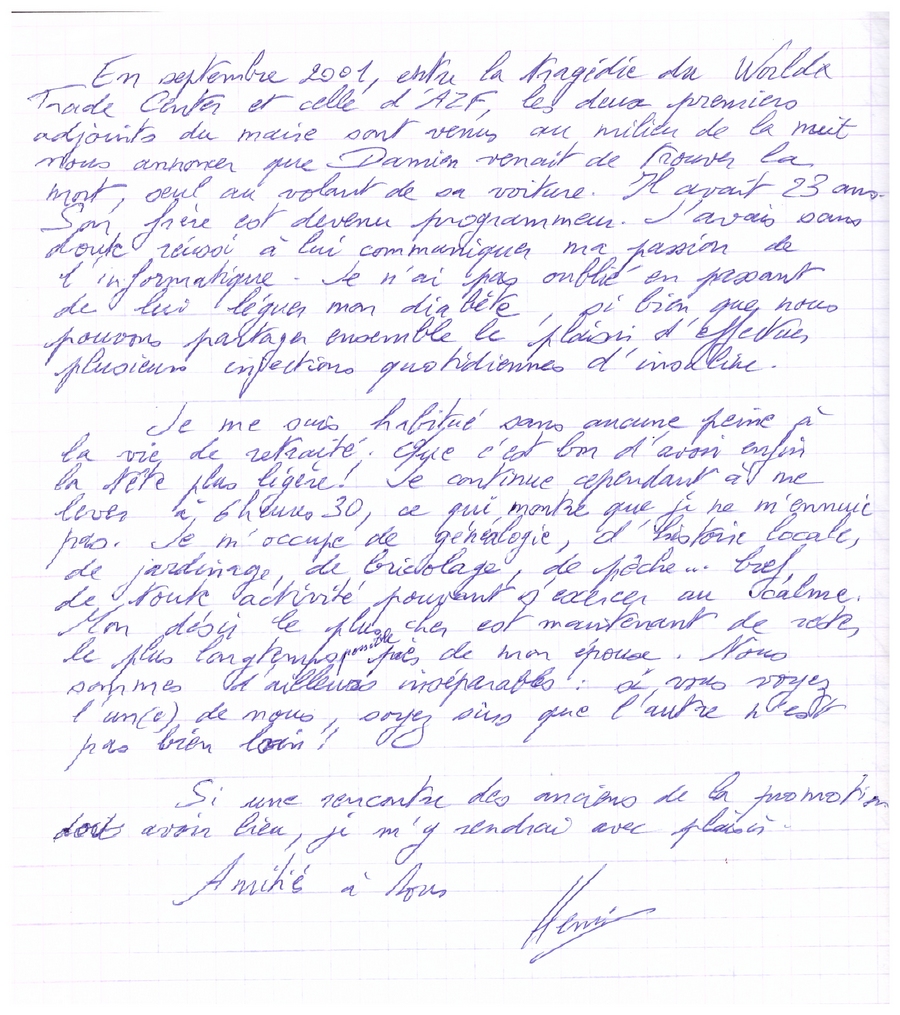 En septembre 2001, entre la tragédie du Worlde
Trade Center et celle d'AZF, les deux premiers
adjoints du maire sont venus au milieu de la nuit
nous annoncer que Damien venait de trouver la
mort, seul au volant de sa voiture. Il avait 23 ans.
Son frère est devenu programmeur. J'avais sans
doute réussi à lui communiquer ma passion de
l'informatique. Je n'ai pas oublié en passant
de lui léguer mon diabète, si bien que nous
pouvons partager ensemble le plaisir d'effectuer
plusieurs injections quotidiennes d'insuline.
Je me suis habitué sans aucune peine à
la vie de retraité. Que c'est bon d'avoir enfin
la tête plus légère! Je continue cependant à me
lever à 6 heures 30, ce qui montre que je ne m'ennuie
pas. Je m'occupe de généalogie, d'histoire locale,
de jardinage, de bricolage, de pêche... bref
de toute activité pouvant s'exercer au calme.
Mon désir le plus cher est maintenant de rester
le plus longtemps possible près de mon épouse. Nous
sommes d'ailleurs inséparables : si vous voyez
l'un(e) de nous, soyez sûrs que l'autre n'est
pas bien loin!
Si une rencontre des anciens de la promotion
doit avoir lieu, je m'y rendrai avec plaisir.
Amitié à tous
Henri